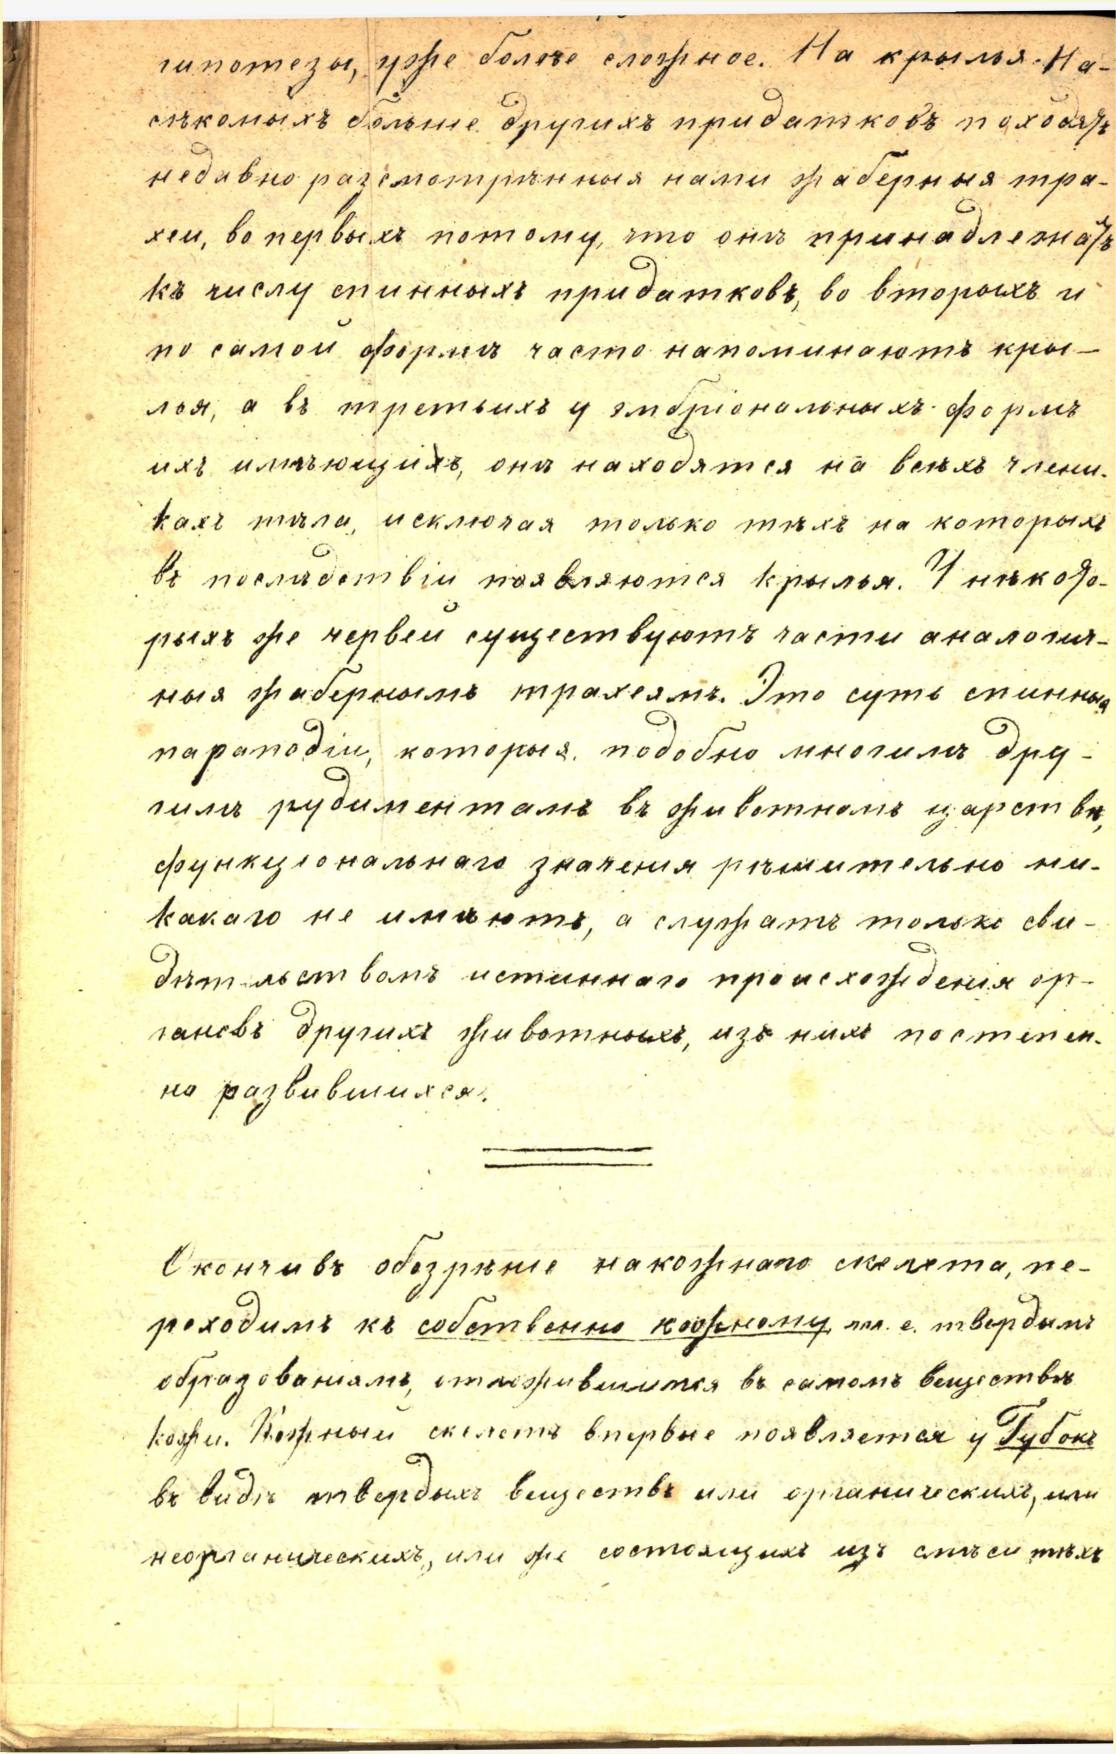 гипотезы, уже более сложное. На крылья На-
сѣкомыхъ больше другихъ придатковъ походятъ
недавно разсмотрѣнныя нами жаберныя тра-
хеи, во первыхъ потому, что онѣ принадлежатъ
къ числу спинныхъ придатковъ, во вторыхъ и
по самой формѣ часто напоминаютъ кры-
лья, а въ третьихъ у эмбріональныхъ формъ
ихъ имѣющихъ, онѣ находятся на всѣхъ члени-
кахъ тѣла, исключая только тѣхъ на которыхъ
въ послѣдствіи появляются крылья. У нѣкото-
рыхъ же червей существуютъ части аналогич-
ныя жабернымъ трахеямъ. Это суть спинныя
параподіи, которыя подобно многимъ дру-
гимъ рудиментамъ въ животномъ царствѣ,
функціональнаго значенія рѣшительно ни-
какаго не имѣютъ, а служатъ только сви-
дѣтельствомъ истиннаго происхожденія ор-
гановъ другихъ животныхъ, изъ нихъ постепен-
но развившихся.
Окончивъ обозрѣніе накожнаго скелета, пе-
реходимъ къ собственно кожному т. е. твердымъ
образованіямъ, отложившимся въ самомъ веществѣ
кожи. Кожный скелетъ впервые появляется у Губокъ
въ видѣ твердыхъ веществъ или органическихъ, или
неорганическихъ, или же состоящихъ изъ смѣси тѣхъ